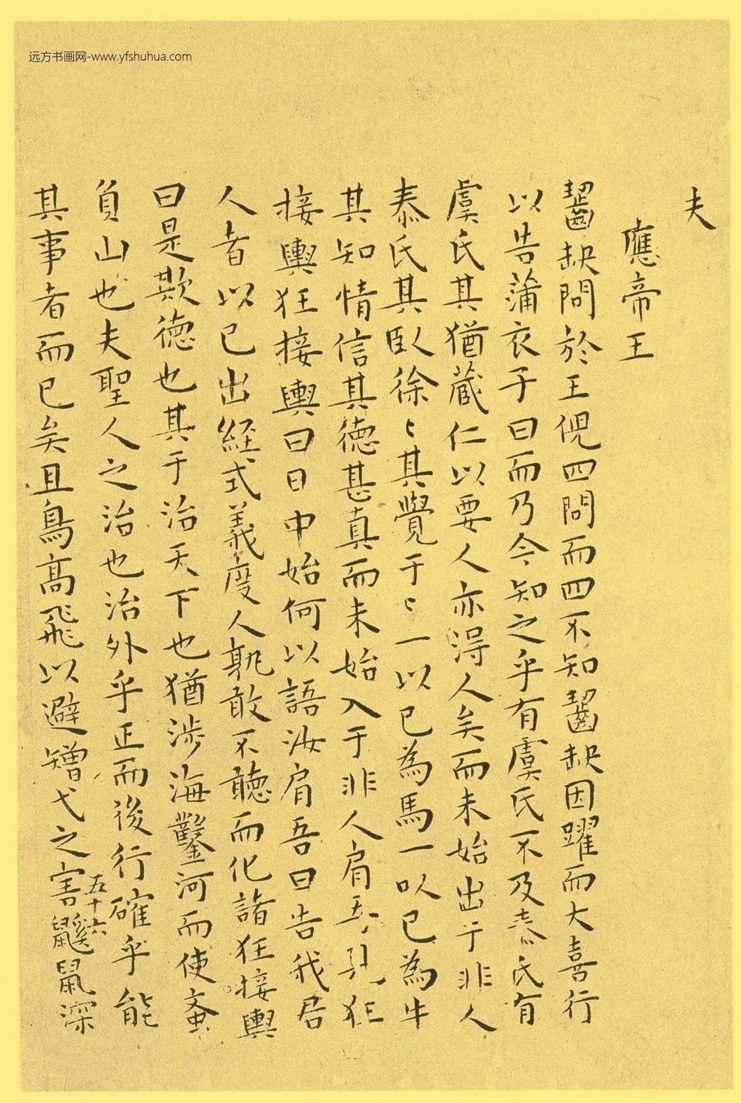 远方书画网-www.yfshuhua.com
夫
應帝王
齧缺問於王倪四問而四不知齧缺因躍而大喜行
以告蒲衣子曰而乃今知之乎有虞氏不及泰氏有
虞氏其猶蔵仁以要人亦淂人矣而未始出于非人
泰氏其臥徐〻其覺于〻一以已為馬一以已為牛
其知情信其德甚真而未始入于非人肩吾見狂
接輿狂接輿曰日中始何以語汝肩吾曰告我君
人者以已出經式義度人孰敢不聽而化諸狂接輿
曰是欺德也其于治天下也猶涉海鑿河而使蚉
負山也夫聖人之治也治外乎正而後行確乎能
其事者而已矣且鳥高飛以避矰弋之害鼷鼠深
五十六